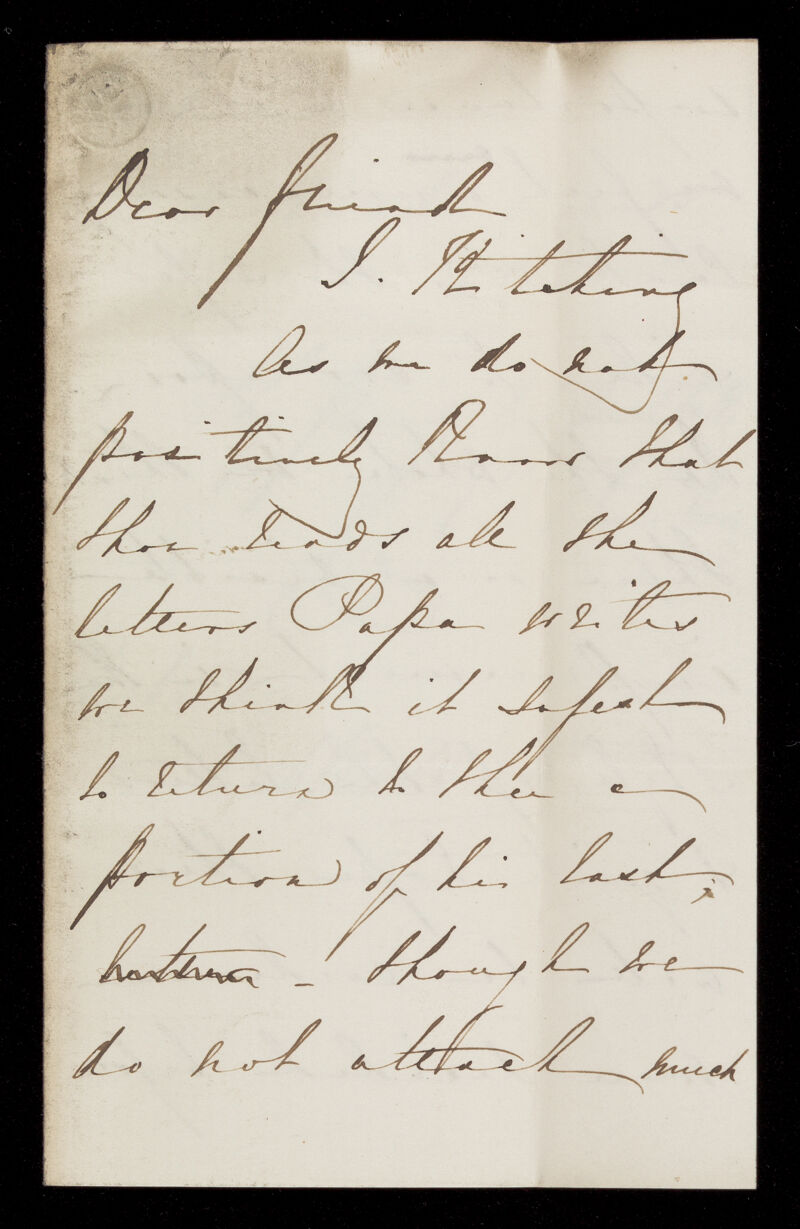 Dear friend
J. Kitching
As we do not
positively know that
thou reads all the
letters Papa writes
we think it safest
to return to thee a
portion of his last,
- though we
do not attach much